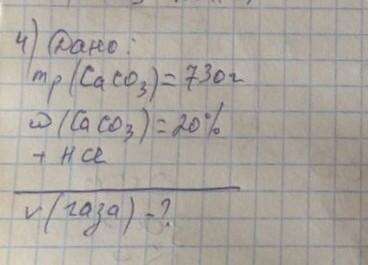 4) Дано:
mр(CaCO3)=730г
ω(CaCO3)=20%
+ HCl
v(газа)-?